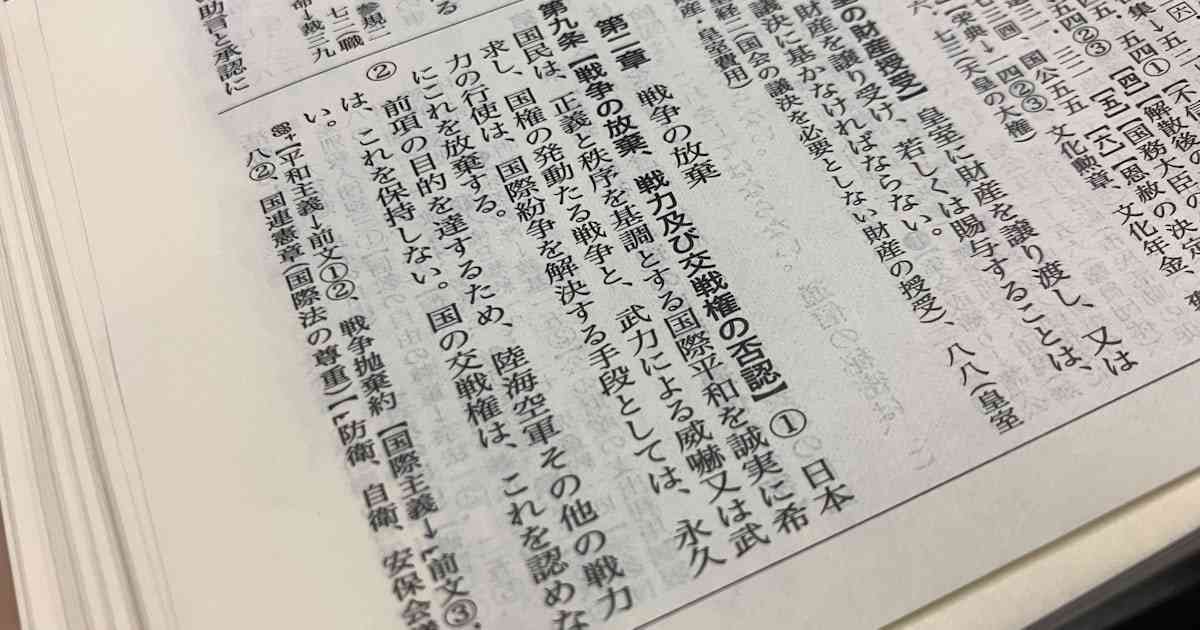 不
解散後の
大臣の決定
四①
【五】【国務大
【六】【恩赦の
文化勲章、文化年金、
国公五五
四②③
【栄典→
七三(天皇の大権)
の財産授受】皇室に財産を譲り渡し、又は
財産を譲り受け、若しくは賜与することは、
議決に基かなければならない。
二(国会の議決を必要としない財産の授受)、八八(皇室
産・皇室費用)
第二章 戦争の放棄
第九条【戦争の放棄、戦力及び交戦権の否認】① 日本
国民は、正義と秩序を基調とする国際平和を誠実に希
求し、国権の発動たる戦争と、武力による威嚇又は武
力の行使は、国際紛争を解決する手段としては、永久
にこれを放棄する。
② 前項の目的を達するため、陸海空軍その他の戦力
は、これを保持しない。国の交戦権は、これを認めな
い。
【平和主義→前文①②、戦争抛棄約【国際主義→前文③、
八②、国連憲章(国際法の尊重)】【防衛、自衛、安保会議
参規二
七二(職
命→裁三九
助言と承認に